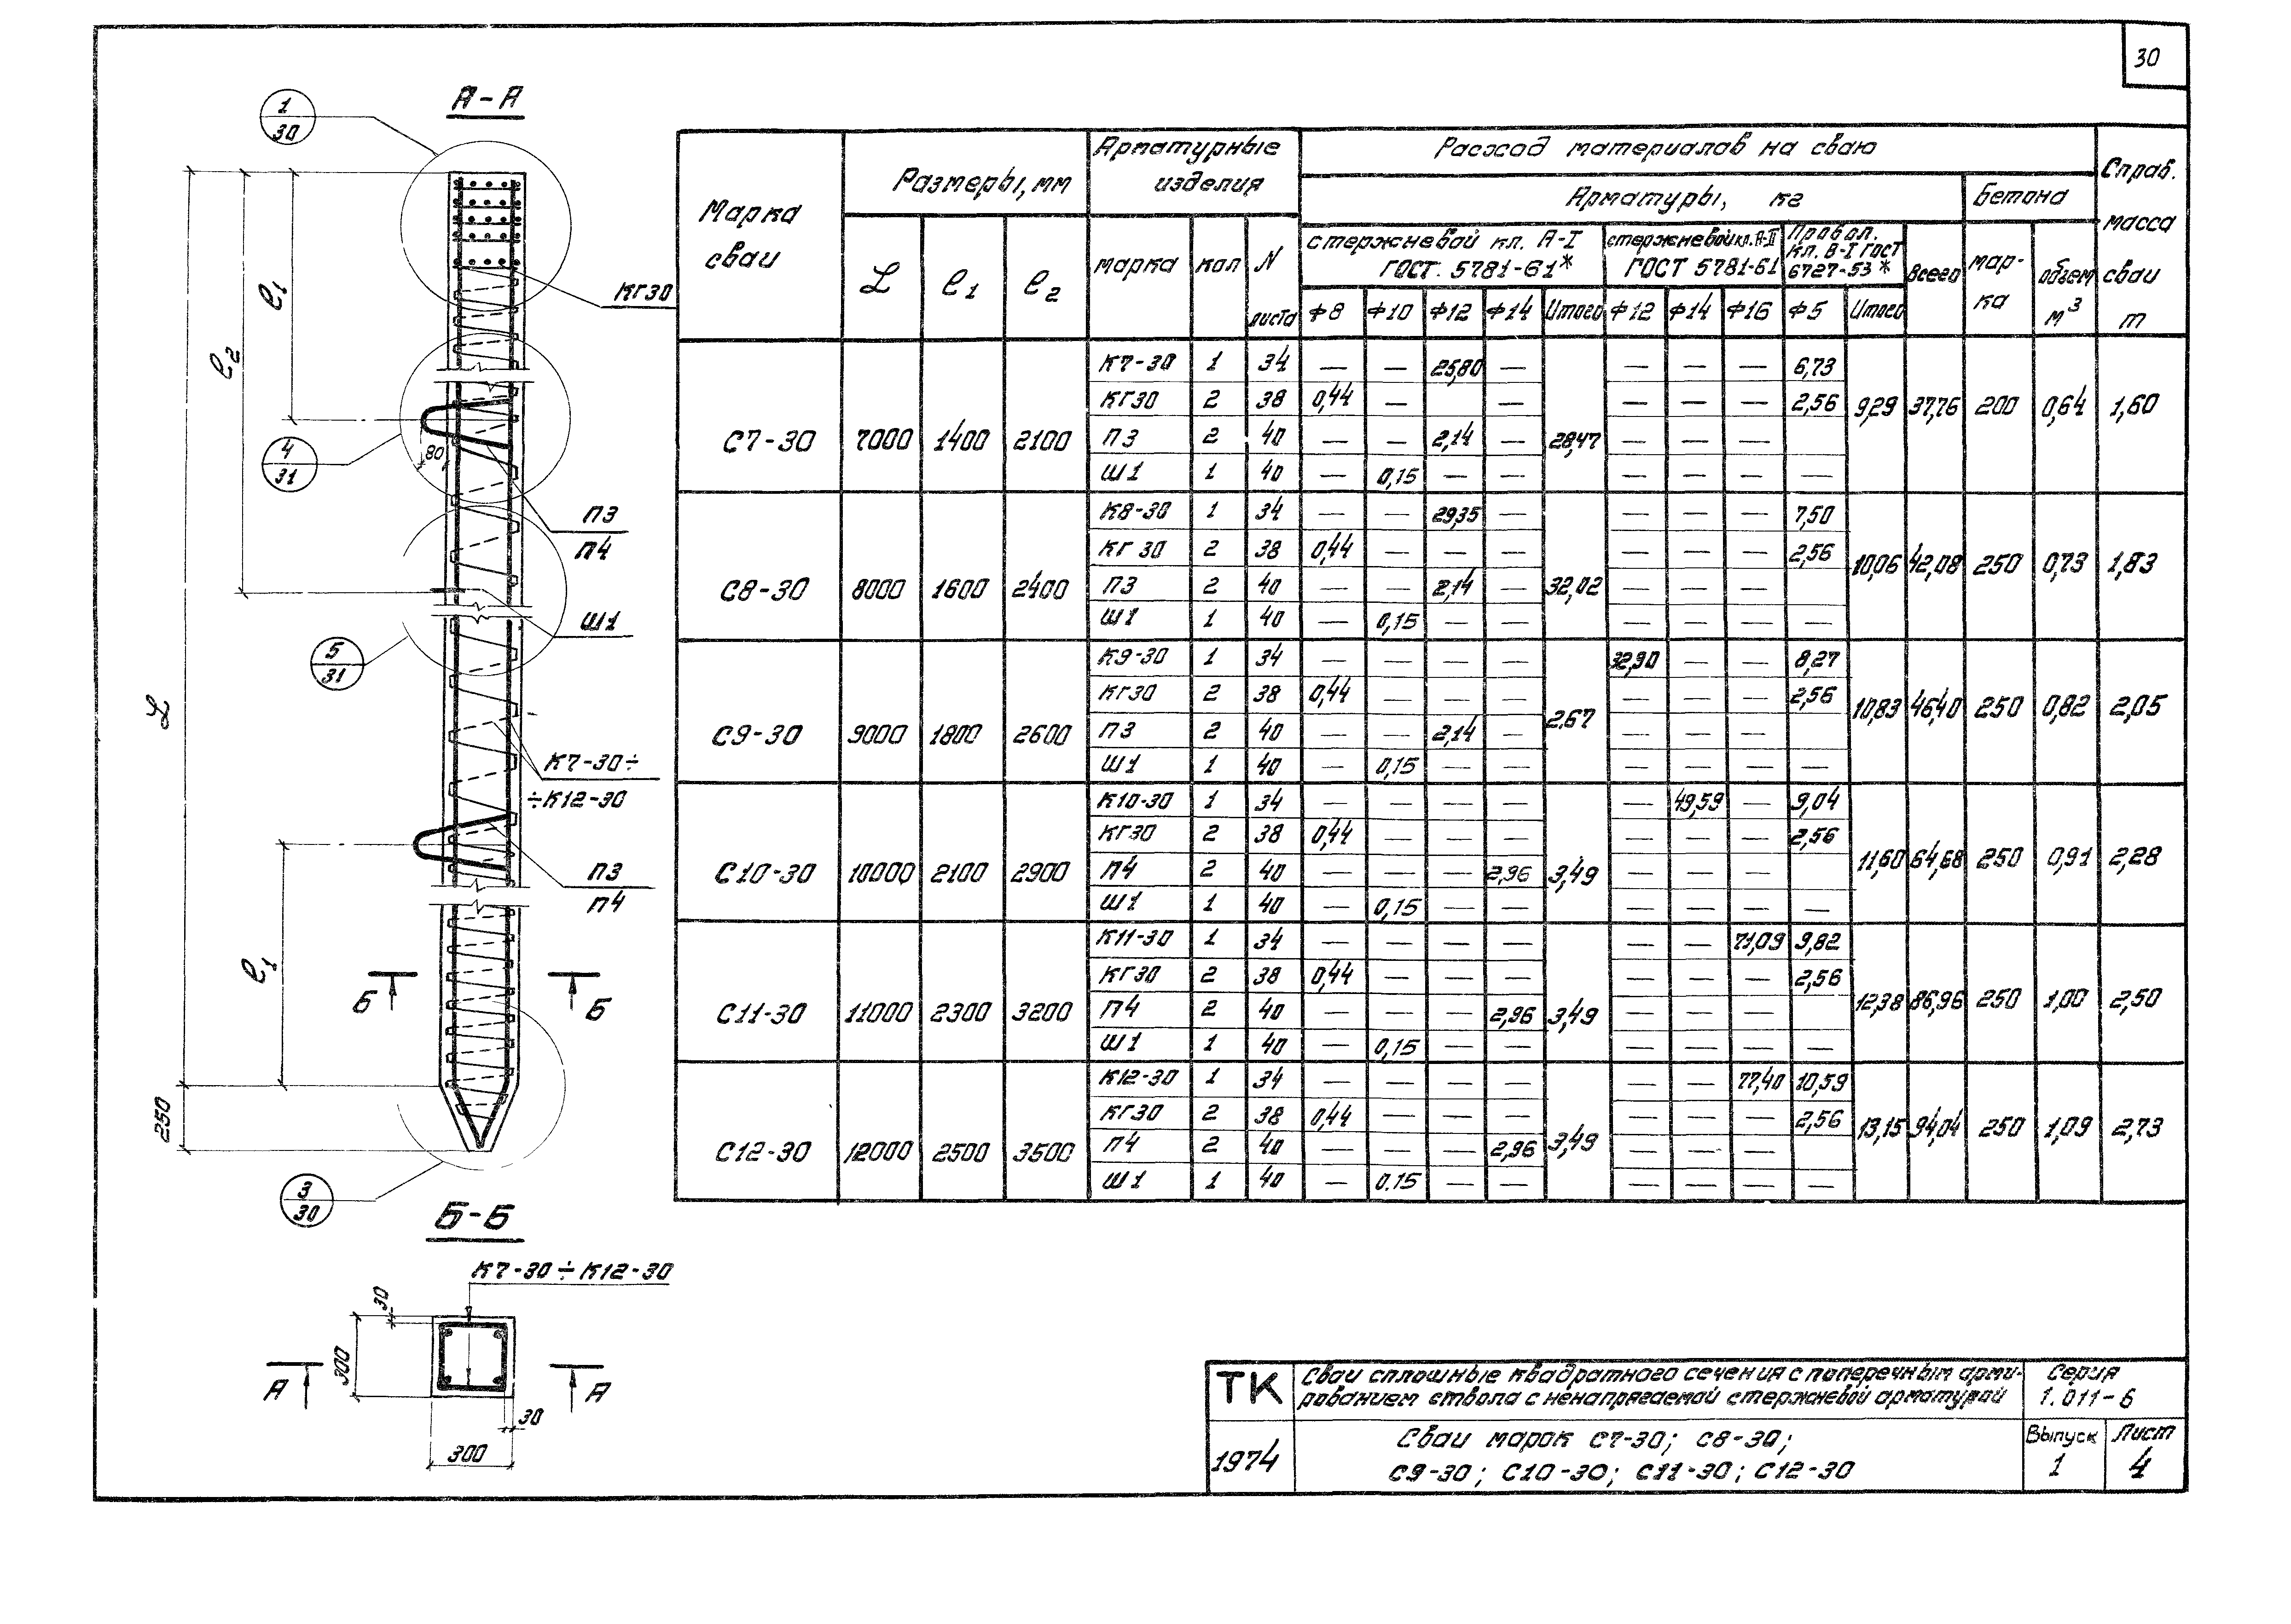 30
А-А
1
30
ℓ1
ℓ2
L
КГ30
4
31
80
П3
П4
Ш1
5
31
К7-30÷
÷К12-30
П3
П4
ℓ1
Б Б
250
3
30
Б-Б
К7-30÷К12-30
30
300
А А
30
300
Марка сваи | Размеры, мм | Арматурные изделия | Расход материалов на сваю | Справ. масса сваи т
Арматуры, кг | Бетона
L | ℓ1 | ℓ2 | марка | кол | N листа | стержневой кл. А-I ГОСТ. 5781-61* | стержневой кл. А-II ГОСТ 5781-61 | Провол. кл. В-I ГОСТ 6727-53* | Всего | мар-ка | объем м3
Ф8 | Ф10 | Ф12 | Ф14 | Итого | Ф12 | Ф14 | Ф16 | Ф5 | Итого
С7-30 | 7000 | 1400 | 2100 | 28,47 | 9,29 | 37,76 | 200 | 0,64 | 1,60
К7-30 | 1 | 34 | — | — | 25,80 | — | — | — | — | 6,73
КГ30 | 2 | 38 | 0,44 | — | — | — | — | — | 2,56
П3 | 2 | 40 | — | — | 2,14 | — | — | — | —
Ш1 | 1 | 40 | — | 0,15 | — | — | — | — | — | —
С8-30 | 8000 | 1600 | 2400 | 32,02 | 10,06 | 42,08 | 250 | 0,73 | 1,83
К8-30 | 1 | 34 | — | — | 29,35 | — | — | — | — | 7,50
КГ 30 | 2 | 38 | 0,44 | — | — | — | — | — | — | 2,56
П3 | 2 | 40 | — | — | 2,14 | — | — | — | —
Ш1 | 1 | 40 | — | 0,15 | — | — | — | — | — | —
С9-30 | 9000 | 1800 | 2600 | 2,67 | 10,83 | 46,40 | 250 | 0,82 | 2,05
К9-30 | 1 | 34 | — | — | — | — | 32,90 | — | — | 8,27
КГ30 | 2 | 38 | 0,44 | — | — | — | — | — | — | 2,56
П3 | 2 | 40 | — | — | 2,14 | — | — | — | —
Ш1 | 1 | 40 | — | 0,15 | — | — | — | — | — | —
С10-30 | 10000 | 2100 | 2900 | 3,49 | 11,60 | 64,68 | 250 | 0,91 | 2,28
К10-30 | 1 | 34 | — | — | — | — | — | 49,59 | — | 9,04
КГ30 | 2 | 38 | 0,44 | — | — | — | — | — | — | 2,56
П4 | 2 | 40 | — | — | — | 2,96 | — | — | —
Ш1 | 1 | 40 | — | 0,15 | — | — | — | — | — | —
С11-30 | 11000 | 2300 | 3200 | 3,49 | 12,38 | 86,96 | 250 | 1,00 | 2,50
К11-30 | 1 | 34 | — | — | — | — | — | — | 71,09 | 9,82
КГ30 | 2 | 38 | 0,44 | — | — | — | — | — | — | 2,56
П4 | 2 | 40 | — | — | — | 2,96 | — | — | —
Ш1 | 1 | 40 | — | 0,15 | — | — | — | — | — | —
С12-30 | 12000 | 2500 | 3500 | 3,49 | 13,15 | 94,04 | 250 | 1,09 | 2,73
К12-30 | 1 | 34 | — | — | — | — | — | — | 77,40 | 10,59
КГ30 | 2 | 38 | 0,44 | — | — | — | — | — | — | 2,56
П4 | 2 | 40 | — | — | — | 2,96 | — | — | — | —
Ш1 | 1 | 40 | — | 0.15 | — | — | — | — | — | —
ТК
1974
Сваи сплошные квадратного сечения с поперечным арми-
рованием ствола с ненапрягаемой стержневой арматурой
Серия
1.011-6
Сваи марок С7-30; С8-30;
С9-30; С10-30; С11-30; С12-30
Выпуск
1
Лист
4